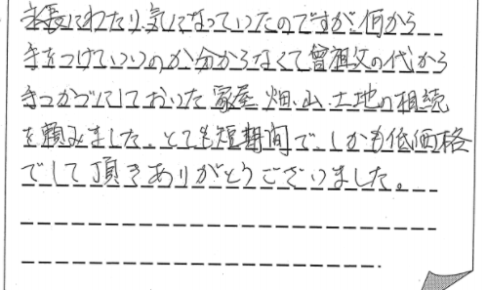 永長にわたり気になっていたのですが、何から
手をつけていいのか分からなくて曾祖父の代から
手つかずにしておいた家屋、畑、山、土地の相続
を頼みました。とても短期間で、しかも低価格
でして頂きありがとうございました。